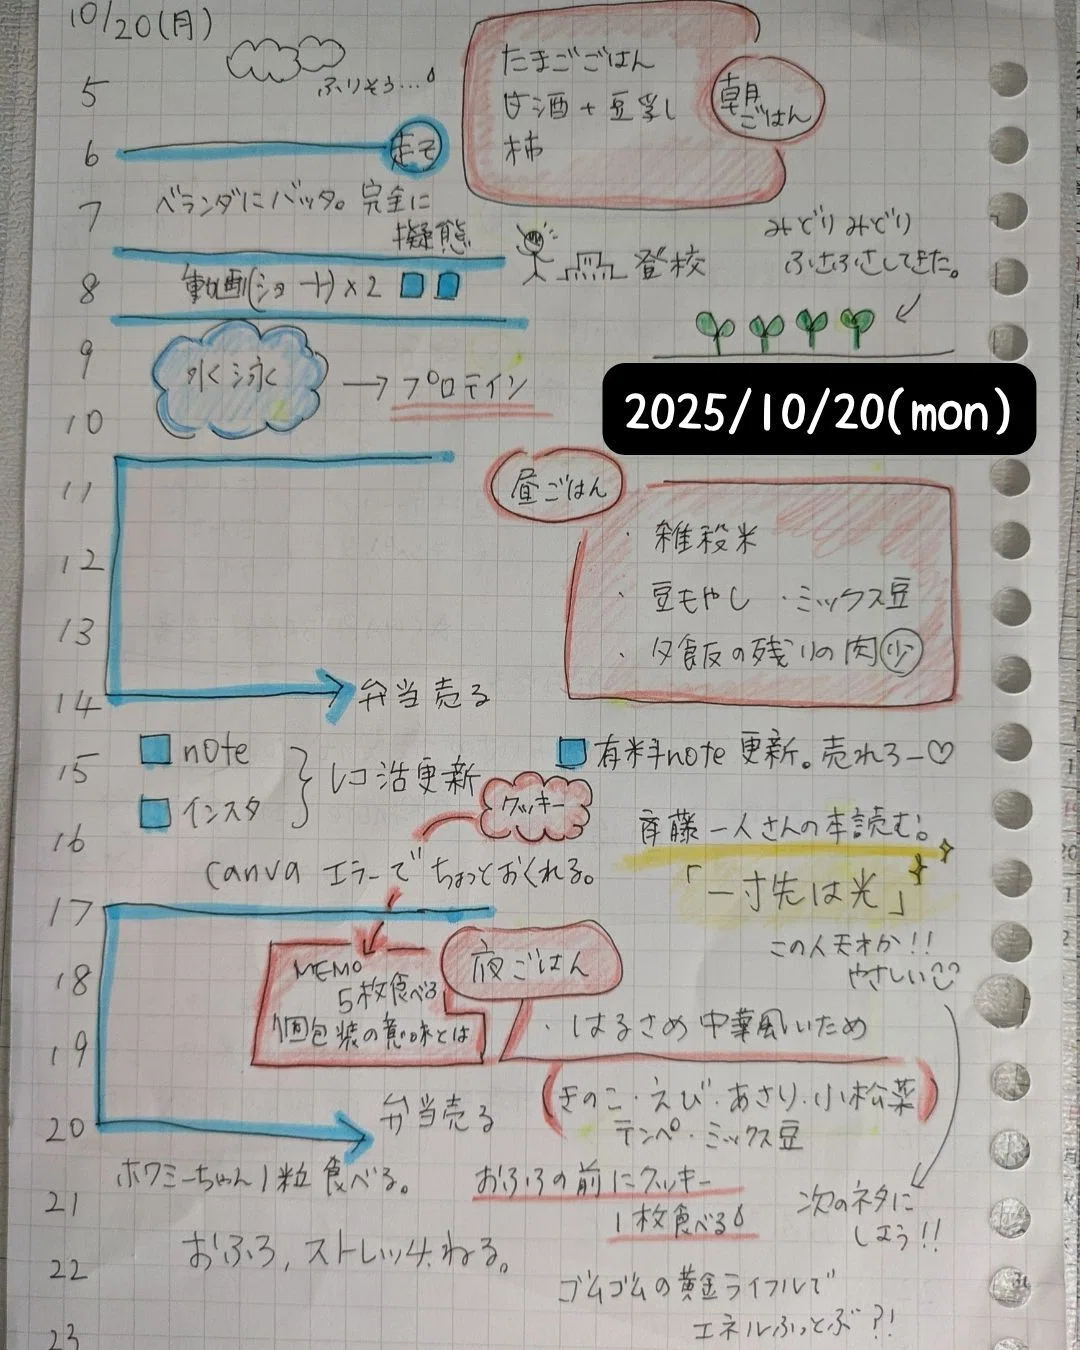 10/20(月)
ふりそう…
5
6
7
8
9
10
11
12
13
14
15
16
17
18
19
20
21
22
23
たまごごはん
甘酒+豆乳
柿
朝ごはん
走る
ベランダにバッタ。完全に
擬態
登校
みどりみどり
ふさふさしてきた。
動画(ショート)×2
水泳
→プロテイン
2025/10/20(mon)
昼ごはん
・雑穀米
・豆もやし ・ミックス豆
・夕飯の残りの肉 少
弁当売る
note
インスタ
レコ活更新
有料note更新。売れろー♡
クッキー
斉藤一人さんの本読む。
「一寸先は光」
canva エラーでちょっとおくれる。
この人天才か!!
やさしい
MEMO
5枚食べる
個包装の意味とは
夜ごはん
・はるさめ中華風いため
(きのこ・えび・あさり・小松菜
テンペ・ミックス豆)
弁当売る
ホワミーちゃん1粒食べる。
おふろの前にクッキー
1枚食べる
次のネタに
しよう!!
おふろ,ストレッチ,ねる。
ゴムゴムの黄金ライフルで
エネルふっとぶ?!